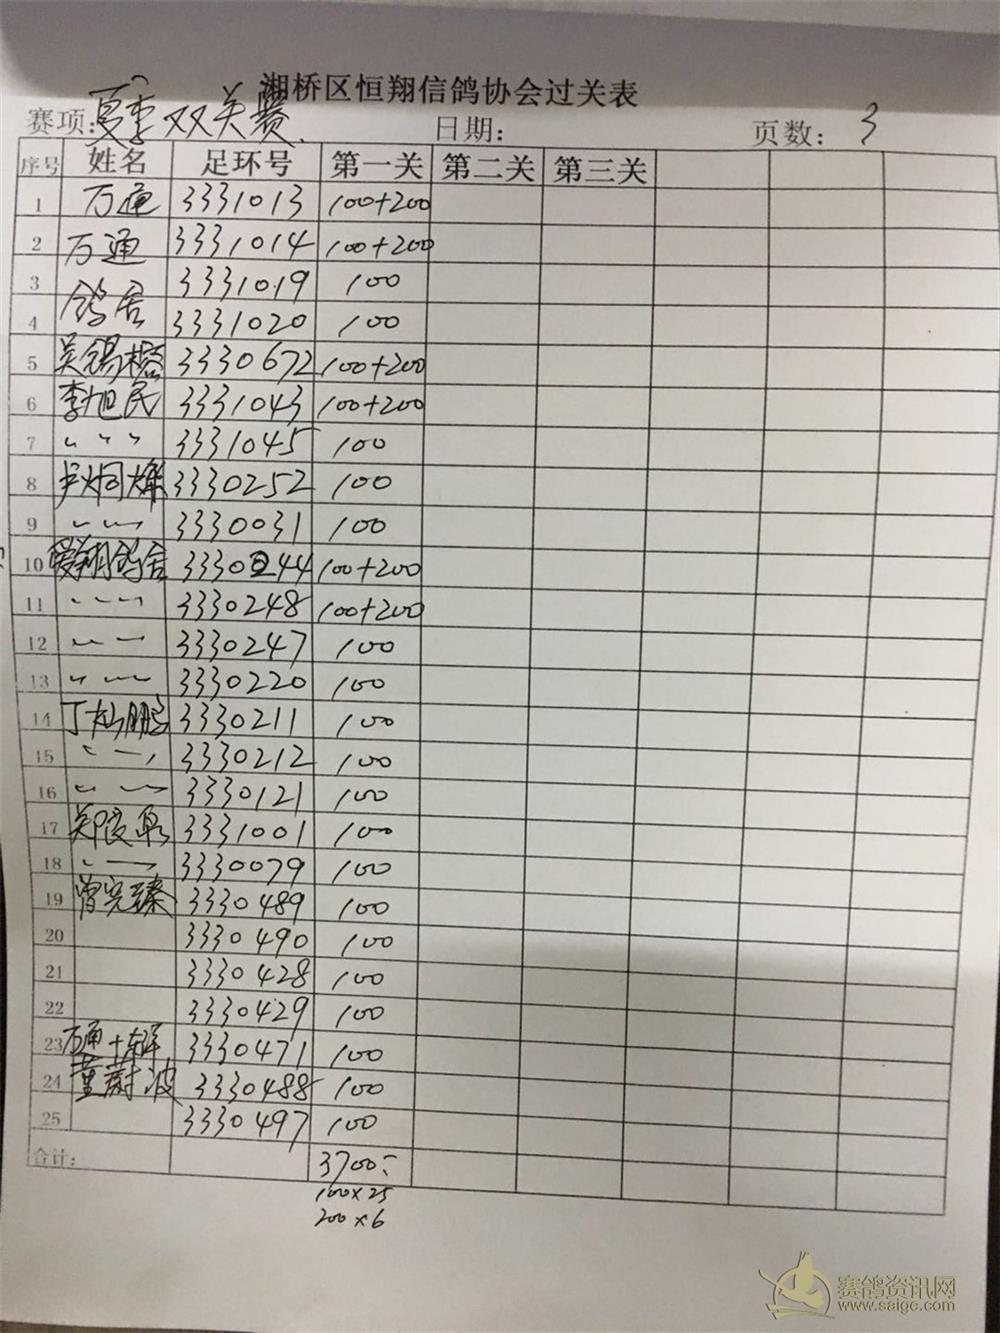 湘桥区恒翔信鸽协会过关表
赛项: 夏季双关赛 日期: 页数: 3
序号 姓名 足环号 第一关 第二关 第三关
1 万通 3331013 100+200
2 万通 3331014 100+200
3 鸽舍 3331019 100
4 3331020 100
5 吴锡 3330672 100+200
6 李旭民 3331043 100+200
7 〃 〃 〃 3331045 100
8 卢炯灿 3330252 100
9 〃 〃 3330031 100
10 爱翔鸽舍 3330244 100+200
11 〃 〃 〃 3330248 100+200
12 〃 〃 3330247 100
13 〃 〃 3330220 100
14 丁灿鹏 3330211 100
15 〃 〃 3330212 100
16 〃 〃 3330121 100
17 郑 3331001 100
18 〃 〃 3330079 100
19 曾完臻 3330489 100
20 3330490 100
21 3330428 100
22 3330429 100
23 万通+ 3330471 100
24 董蔚波 3330488 100
25 3330497 100
合计: 3700
100×25
200×6
赛鸽资讯网
www.saigc.com